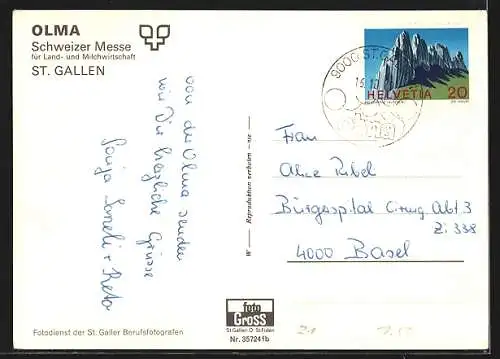 OLMA
Schweizer Messe
für Land- und Milchwirtschaft
ST. GALLEN
von der Olma senden
wir Dir herzliche Grüsse
Sonja + Reto
W — Reproduktion verboten — we
foto
Gross
St.Gallen O St.Fiden
Nr. 357241b
Fotodienst der St. Galler Berufsfotografen
9000 ST.G
HELVETIA 20
Frau
Alice Ribel
Bürgerspital Chirurg. Abt 3
Zi: 338
4000 Basel